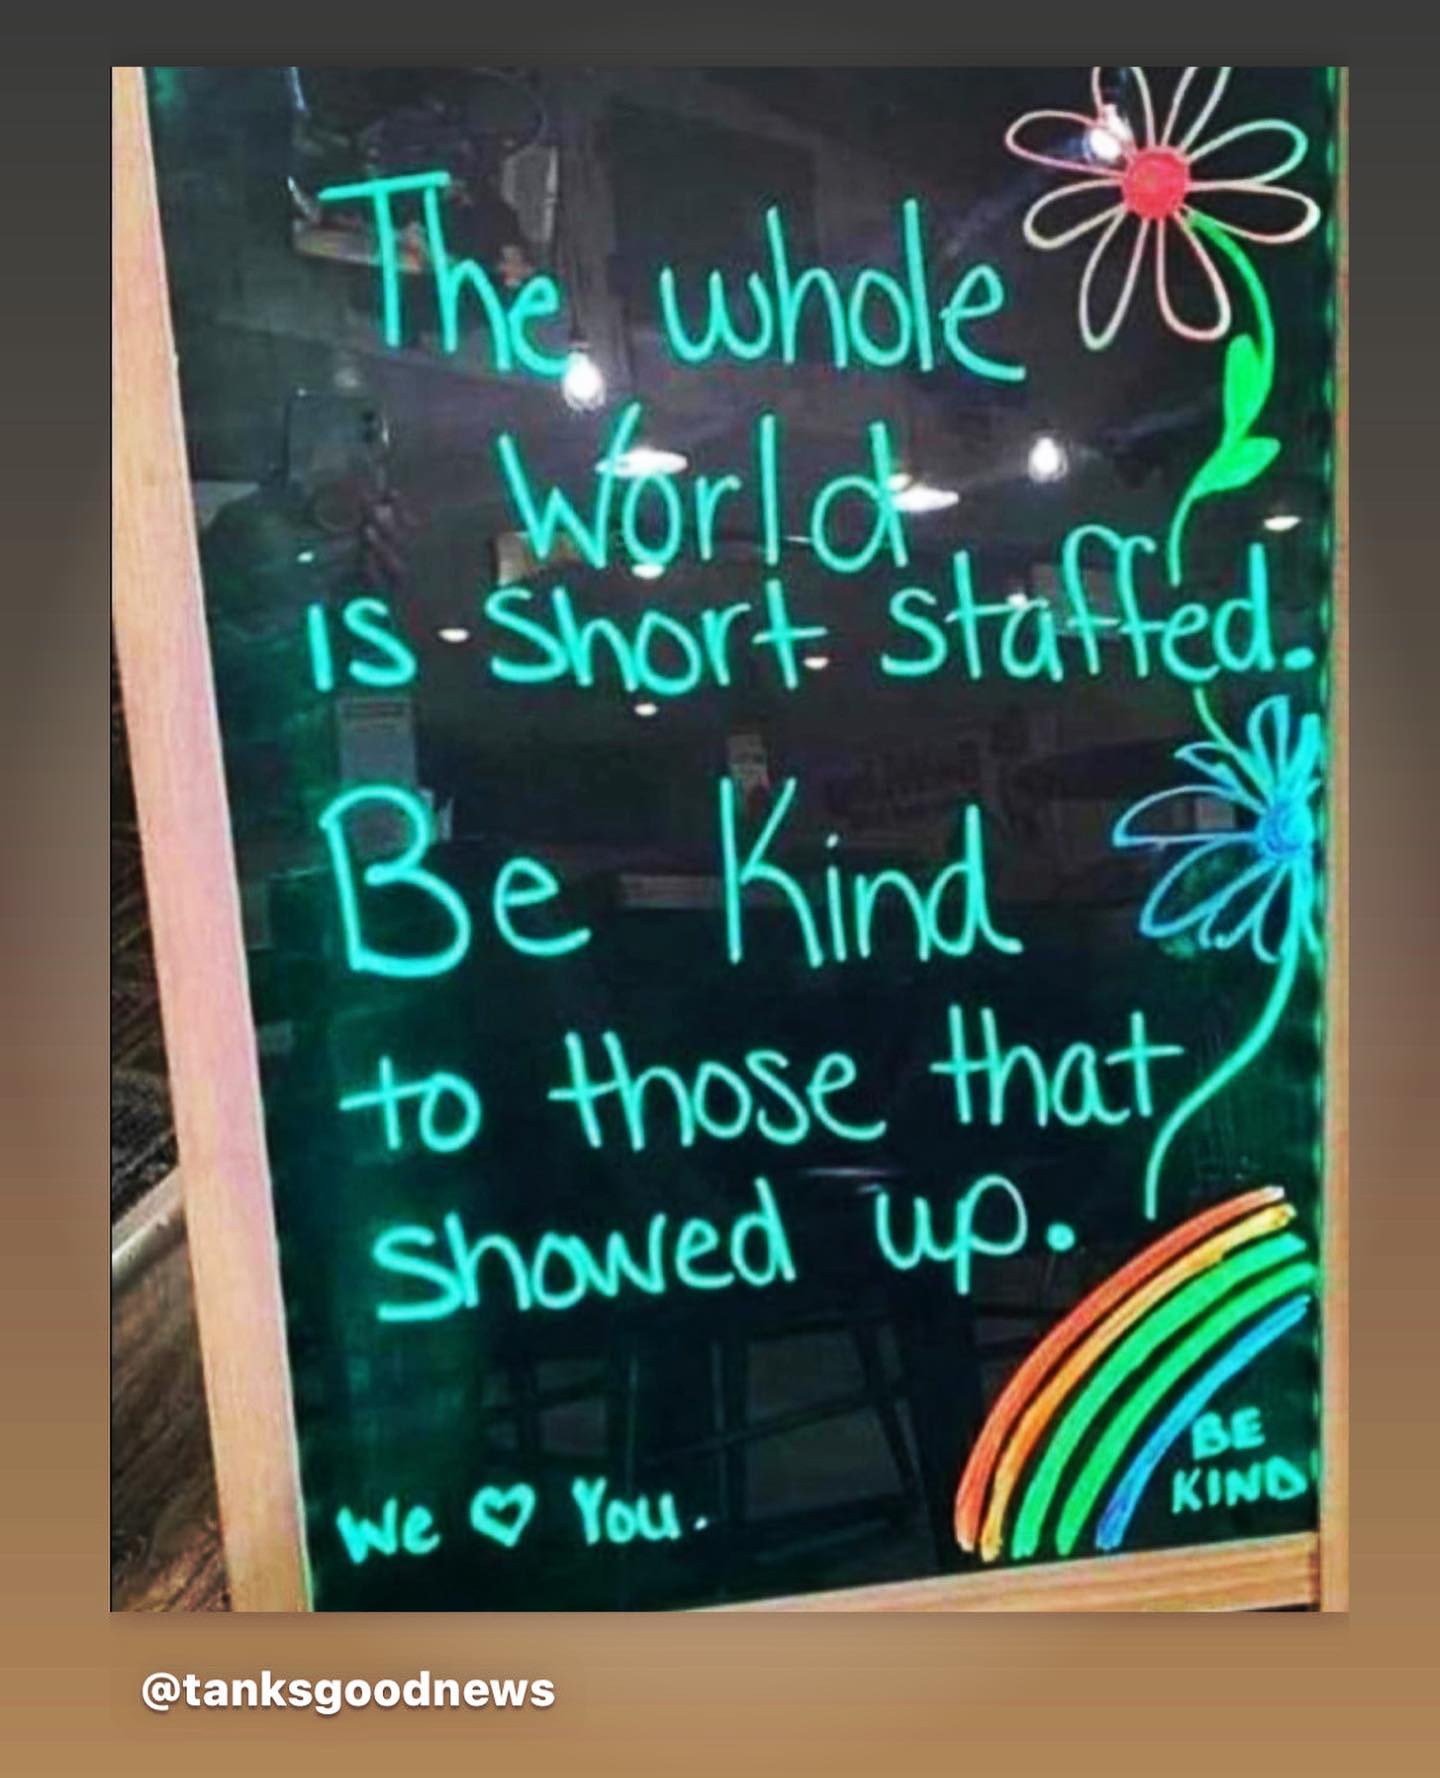 The whole
World
is short staffed.
Be Kind
to those that
showed up.
We ♡ You.
BE
KIND
@tanksgoodnews